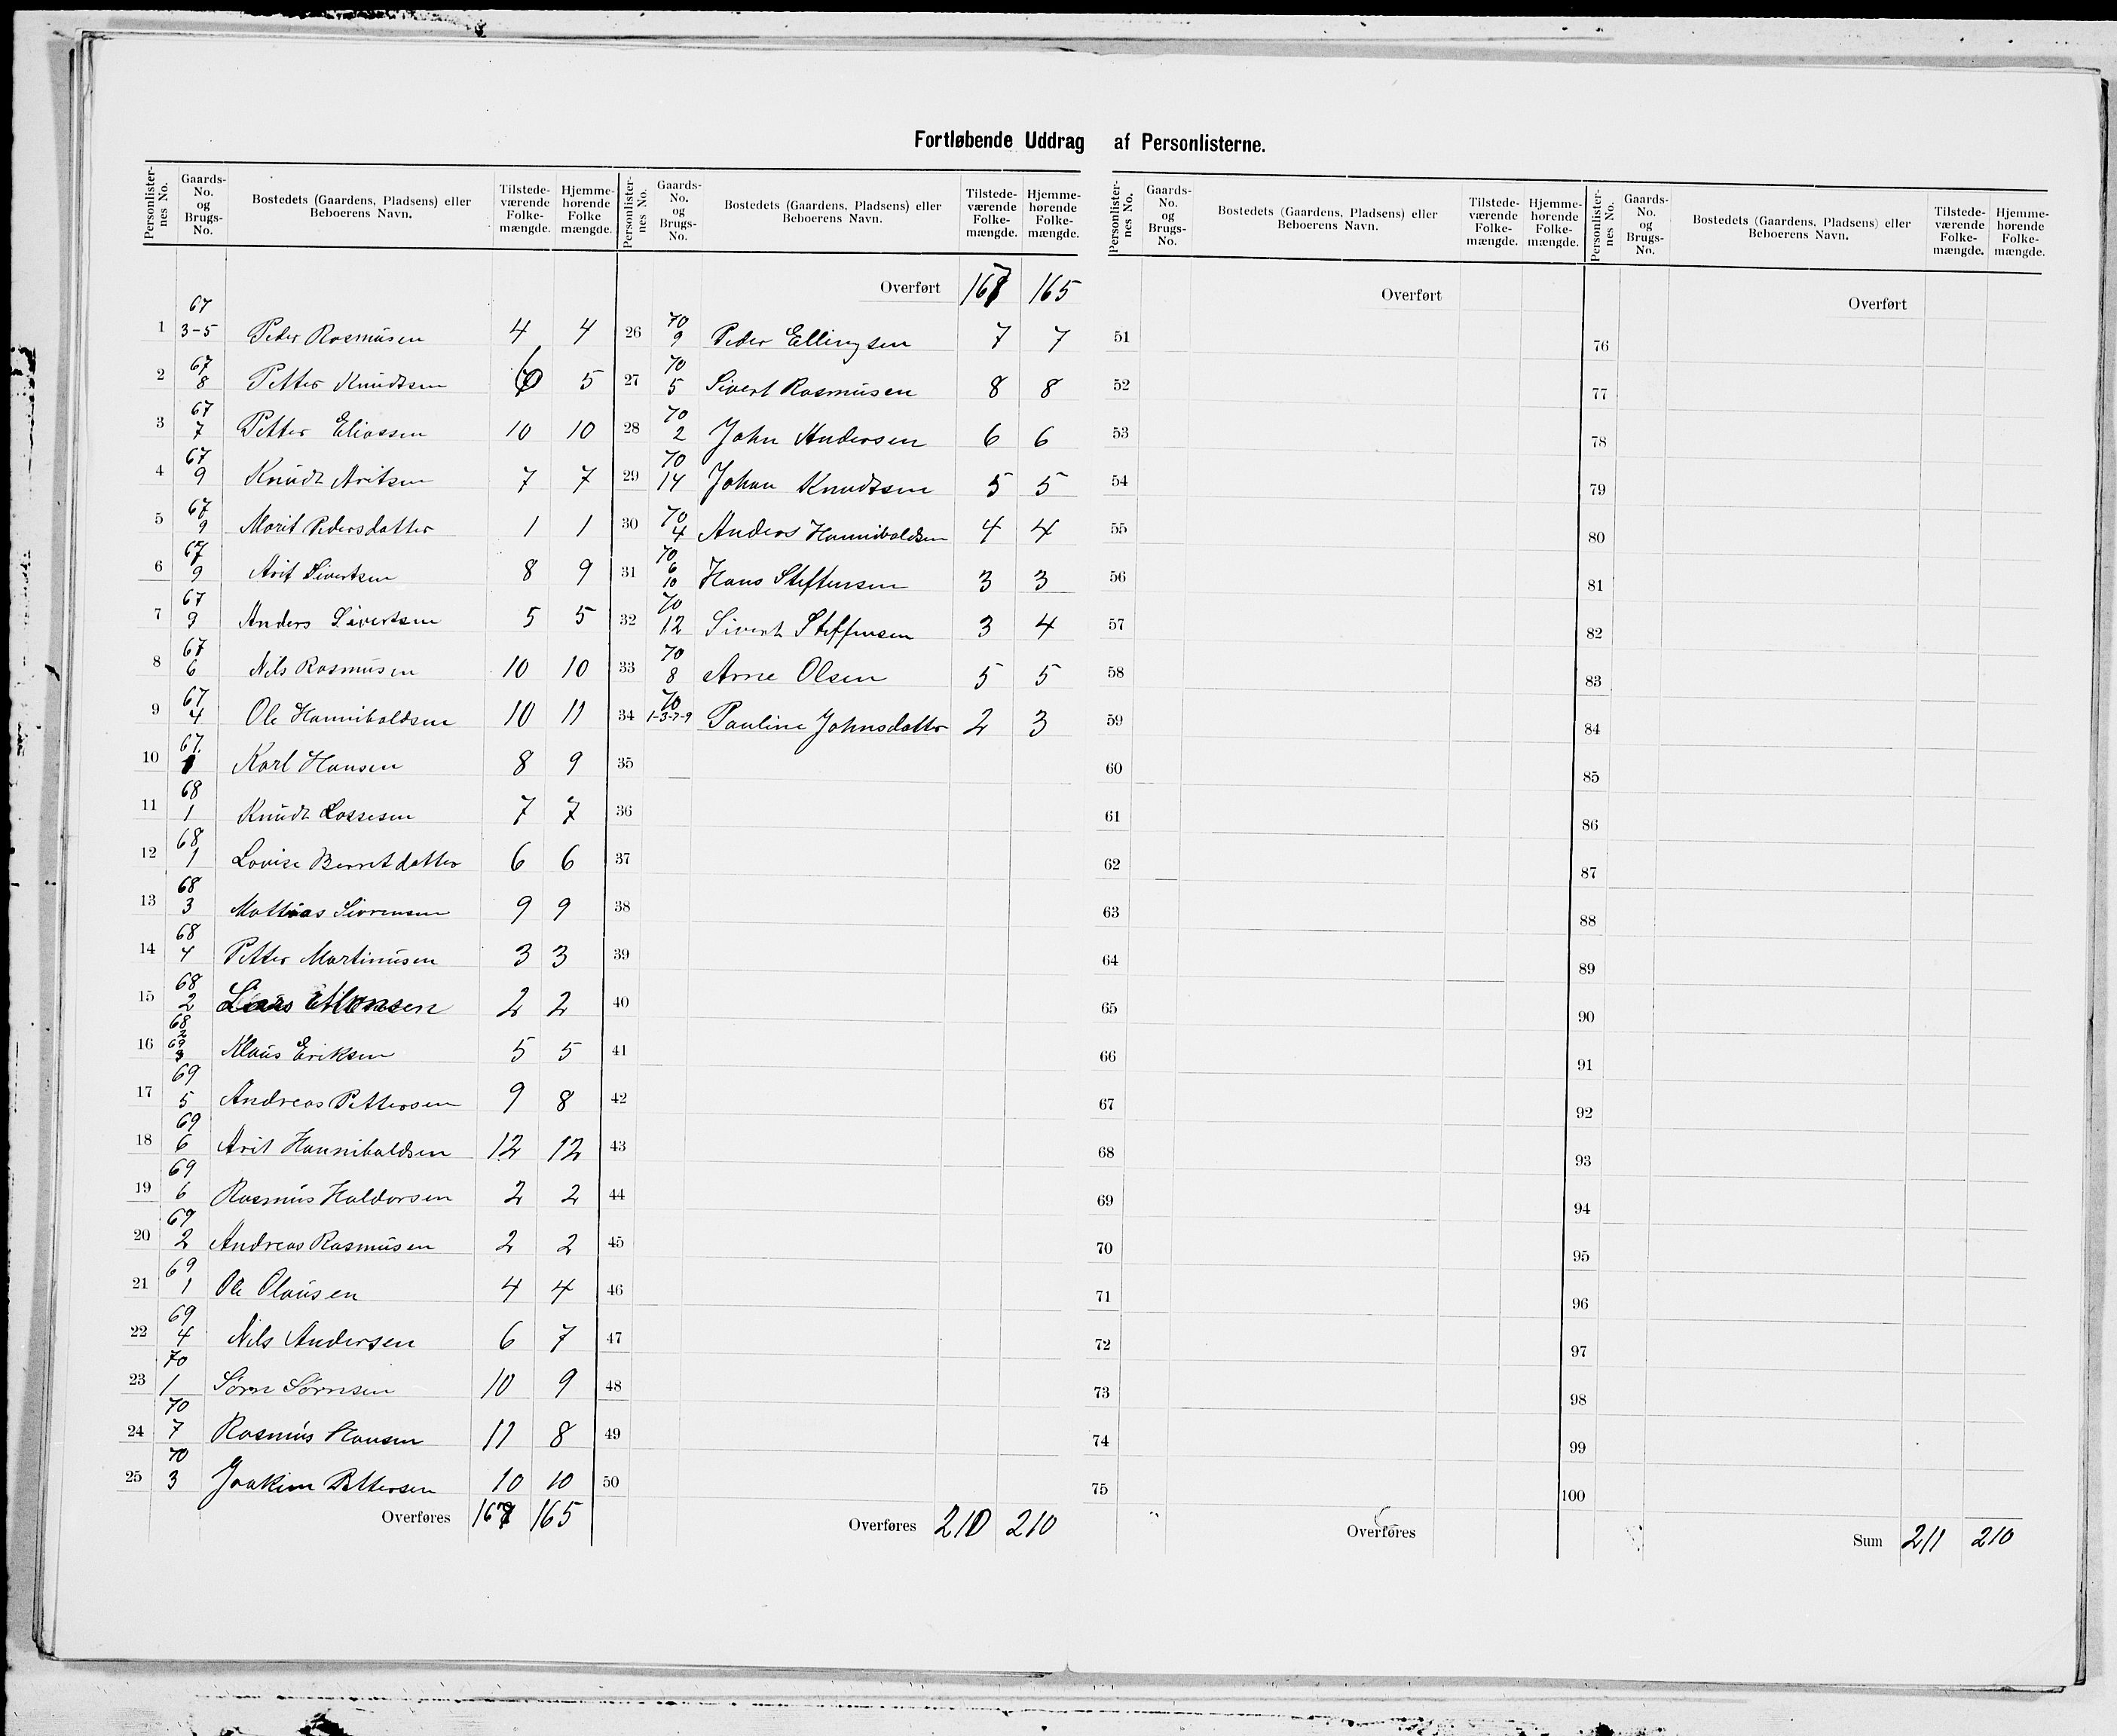 Fortløbende Uddrag af Personlisterne.
Personlisternes No. Gaards-No. og Brugs-No. Bostedets (Gaardens, Pladsens) eller Beboerens Navn. Tilstedeværende Folkemængde. Hjemmehørende Folkemængde.
1 67 3-5 Peder Rasmusen 4 4
2 67 8 Petter Knudtsen 6 5
3 67 7 Petter Eliassen 10 10
4 67 9 Knudt Aritsen 7 7
5 67 9 Marit Pedersdatter 1 1
6 67 9 Arit Sivertsen 8 9
7 67 9 Anders Sivertsen 5 5
8 67 6 Nils Rasmusen 10 10
9 67 4 Ole Hannibaldsen 10 11
10 67 1 Karl Hansen 8 9
11 68 1 Knudt Lossesen 7 7
12 68 1 Lovise Berretdatter 6 6
13 68 3 Mattias Sivrensen 9 9
14 68 4 Petter Martinusen 3 3
15 68 2 Lars Monsen 2 2
16 68 2 69 3 Klaus Eriksen 5 5
17 69 5 Andreas Pettersen 9 8
18 69 6 Arit Hannibaldsen 12 12
19 69 6 Rasmus Haldorsen 2 2
20 69 2 Andreas Rasmusen 2 2
21 69 1 Ole Olausen 4 4
22 69 4 Nils Andersen 6 7
23 70 1 Sørn Sørnsen 10 9
24 70 7 Rasmus Hansen 11 8
25 70 3 Joakim Pettersen 10 10
Overføres 167 165
Personlisternes No. Gaards-No. og Brugs-No. Bostedets (Gaardens, Pladsens) eller Beboerens Navn. Tilstedeværende Folkemængde. Hjemmehørende Folkemængde.
Overført 167 165
26 70 9 Peder Ellingsen 7 7
27 70 5 Sivert Rasmusen 8 8
28 70 2 John Andersen 6 6
29 70 14 Johan Knudtsen 5 5
30 70 4 Anders Hannibaldsen 4 4
31 70 6 10 Hans Steffensen 3 3
32 70 12 Sivert Steffensen 3 4
33 70 8 Arne Olsen 5 5
34 70 1-3-7-9 Pauline Johnsdatter 2 3
35
36
37
38
39
40
41
42
43
44
45
46
47
48
49
50
Overføres 210 210
Personlisternes No. Gaards-No. og Brugs-No. Bostedets (Gaardens, Pladsens) eller Beboerens Navn. Tilstedeværende Folkemængde. Hjemmehørende Folkemængde.
Overført
51
52
53
54
55
56
57
58
59
60
61
62
63
64
65
66
67
68
69
70
71
72
73
74
75
Overføres
Personlisternes No. Gaards-No. og Brugs-No. Bostedets (Gaardens, Pladsens) eller Beboerens Navn. Tilstedeværende Folkemængde. Hjemmehørende Folkemængde.
Overført
76
77
78
79
80
81
82
83
84
85
86
87
88
89
90
91
92
93
94
95
96
97
98
99
100
Sum 211 210